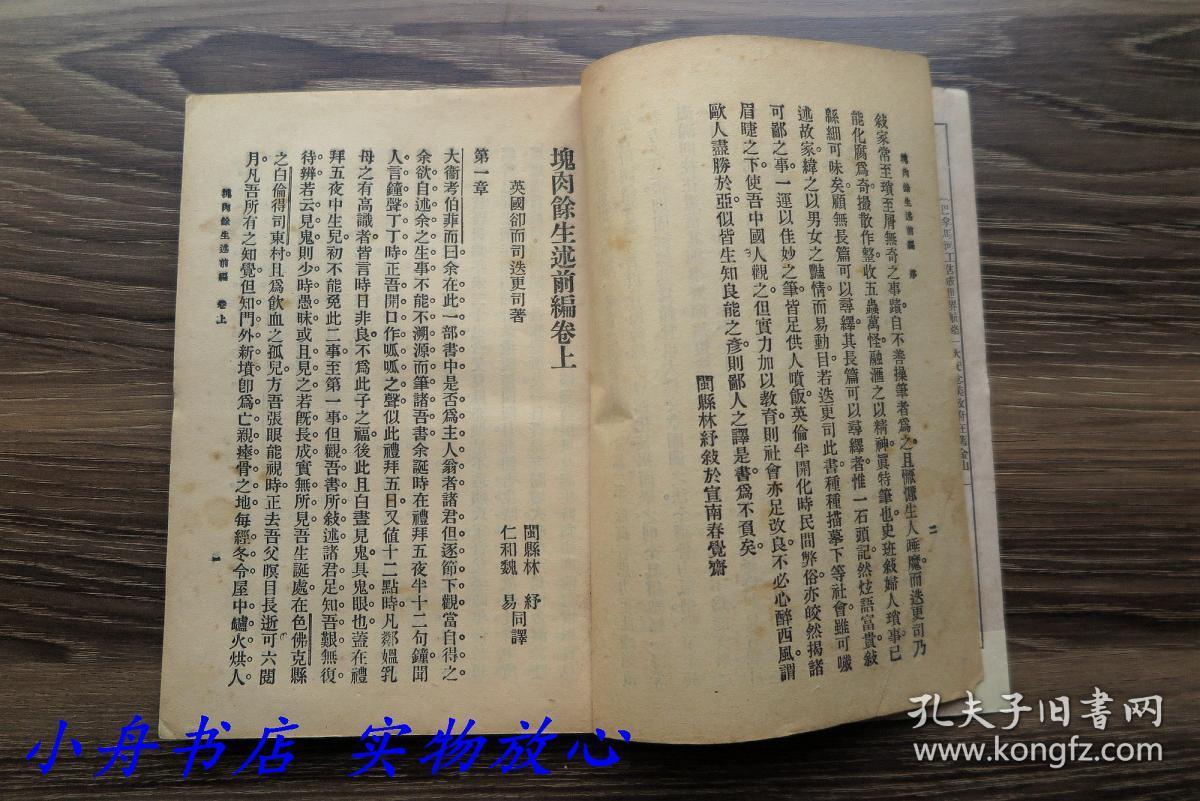 塊肉餘生述前編 序
二
敍家常至瑣至屑無奇之事蹟。自不善操筆者爲之。且懨懨生人睡魔。而迭更司乃
能化腐爲奇。撮散作整。收五蟲萬怪。融滙之以精神。眞特筆也。史班敍婦人瑣事。已
緜細可味矣。顧無長篇可以尋繹。其長篇可以尋繹者。惟一石頭記。然炫語富貴。敍
述故家。緯之以男女之豔情。而易動目。若迭更司此書。種種描摹下等社會。雖可噦
可鄙之事。一運以佳妙之筆。皆足供人噴飯。英倫半開化時民間弊俗。亦皎然揭諸
眉睫之下。使吾中國人觀之。但實力加以教育。則社會亦足改良。不必心醉西風。謂
歐人盡勝於亞。似皆生知良能之彥。則鄙人之譯是書。爲不負矣。
閩縣林紓敍於宣南春覺齋
塊肉餘生述前編卷上
英國卻而司迭更司著
閩縣林 紓
仁和魏 易同譯
第一章
大衞考伯菲而曰。余在此一部書中。是否爲主人翁者。諸君但逐節下觀。當自得之。
余欲自述余之生事。不能不溯源而筆諸吾書。余誕時在禮拜五夜半十二句鐘。聞
人言鐘聲丁丁時。正吾開口作呱呱之聲。似此禮拜五日。又値十二點時。凡鄰媼乳
母之有高識者。皆言時日非良。不爲此子之福。後此且白晝見鬼。具鬼眼也。蓋在禮
拜五夜中生兒。初不能免此二事。至第一事。但觀吾書所敍述。諸君足知吾艱。無復
待辨。若云見鬼。則少時愚昧。或且見之。若既長成。實無所見。吾生誕處在色佛克縣
之白倫得司東村。且爲飮血之孤兒。方吾張眼能視時。正去吾父暝目長逝。可六閱
月。凡吾所有之知覺。但知門外新墳。卽爲亡親瘞骨之地。每經冬令。屋中罏火烘人。
塊肉餘生述前編 卷上
一
小舟书店 实物放心
孔夫子旧書网
www.kongfz.com